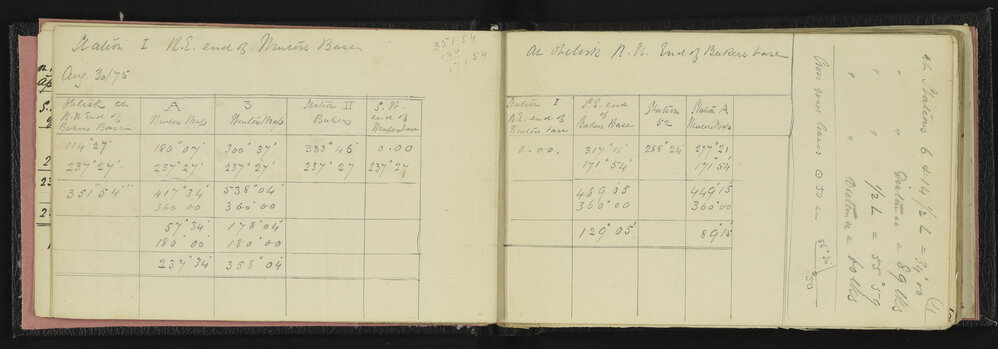 Station I N.E. end of Minetos Base
351 54
180
171 54
Aug 30/75
Obelisk at N.N. End of Bakers Base | A Minetos Map | 3 Minetos Map | Station II Bakers | S.W. end of Minetos base
114° 27' | 180° 07' | 300° 37' | 335° 46' | 0.00
237° 27' | 237° 27' | 237° 27' | 237° 27 | 237° 27
351° 54' | 417° 34' | 538° 04'
360 00 | 360 00
57° 34' | 178° 04'
180° 00 | 180° 00
237° 34' | 358° 04'
At Obelisk N.N. End of Bakers base
Station I N.E. end of base | S.E. end of Bakers Base | Station 52 | Station A
0.00. | 317° 11' | 288° 24' | 277° 21
171° 54' | 171° 54'
489 05 | 449° 15
360° 00 | 360° 00
129° 05' | 89 15
@ 50
50
At Stations 6 & 14 1/2 L = 34° 00
" " Distance = 89 lks
" " 1/2 L = 55° 59
" " Distance 60 lks